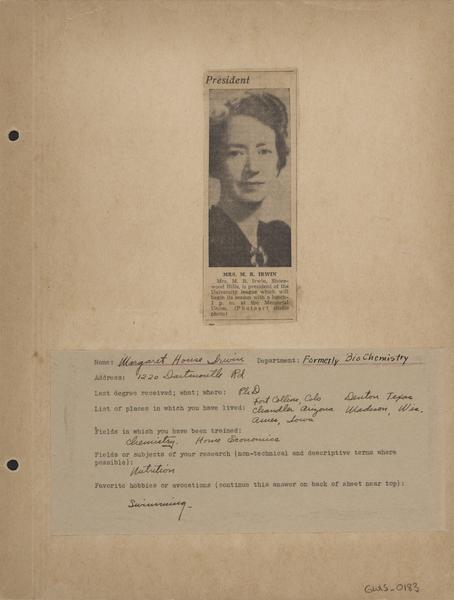 President
MRS. M. R. IRWIN
Mrs. M. R. Irwin, Shore-
wood Hills, is president of the
University league which will
begin its season with a lunch-
1 p. m. at the Memorial
Union. (Photoart studio
photo)
Name: Margaret House Irwin Department: Formerly BioChemistry
Address: 1220 Dartmouth Rd
Last degree received; what; where: PhD
List of places in which you have lived: Fort Collins, Colo Denton Texas
Chandler Arizona Madison, Wis.
Ames, Iowa
Fields in which you have been trained:
Chemistry. Home Economics
Fields or subjects of your research (non-technical and descriptive terms where
possible):
Nutrition
Favorite hobbies or avocations (continue this answer on back of sheet near top):
Swimming
GWS_0183